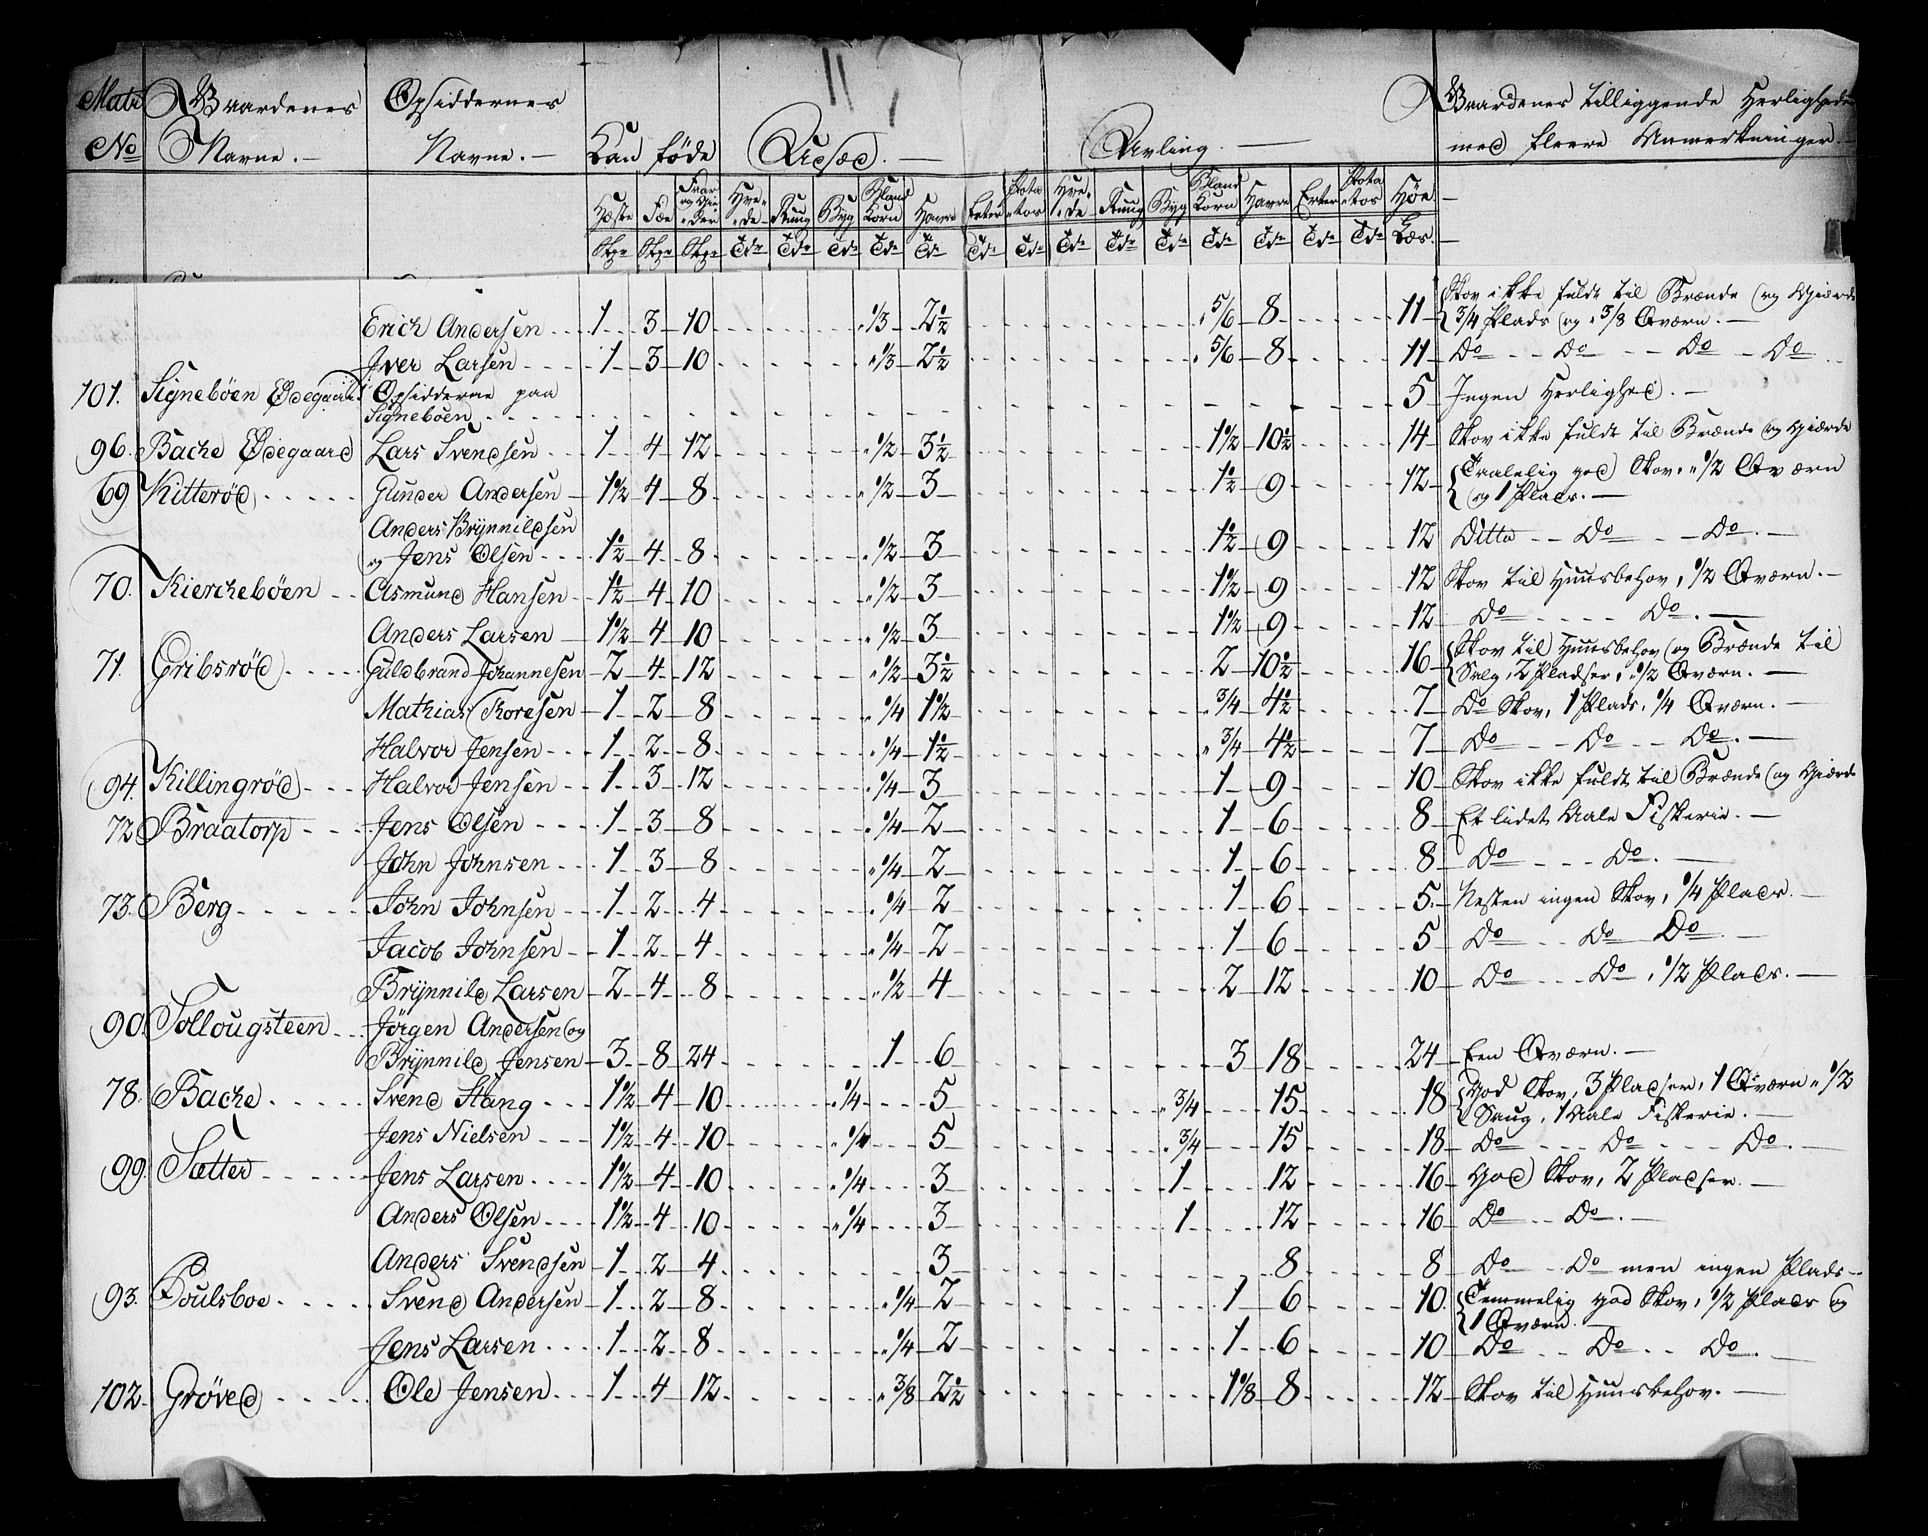 11
Matr No
Gaardenes Navne.
Opsiddernes Navne.
Kan føde
Udsæd.
Avling.
Gaardenes tilliggende Herligheder
med fleere Anmerkninger.
Hæste Fæe Faar og Gieder Hvede Rung Byg Bland Korn Havre Erter Potatos Hvede Rung Byg Bland Korn Havre Erter Potatos Høe
Stkr Stkr Stkr Tdr Tdr Tdr Tdr Tdr Tdr Tdr Tdr Tdr Tdr Tdr Tdr Tdr Tdr Læs.
Erich Andersen 1 3 10 " 1/3 2 1/2 " 5/6 8 11 Skov ikke fuldt til Brænde og Gierde
3/4 Plads og " 3/8 Qværn.
Iver Larsen 1 3 10 " 1/3 2 1/2 " 5/6 8 11 Do Do Do Do
101. Signebøen Ødegaard Opsidderne paa
Signebøen 5 Ingen Herlighed.
96. Bache Ødegaard Lars Svendsen 1 4 12 " 1/2 3 1/2 1 1/2 10 1/2 14 Skov ikke fuldt til Brænde og Gierde
69 Kitterød Gunder Andersen 1 1/2 4 8 " 1/2 3 1 1/2 9 12 Taalelig god Skov, " 1/2 Qværn
og 1 Plads.
Anders Brynnildsen
og Jens Olsen 1 1/2 4 8 " 1/2 3 1 1/2 9 12 Ditto Do Do
70. Kierchebøen Asmund Hansen 1 1/2 4 10 " 1/2 3 1 1/2 9 12 Skov til Huusbehov, 1/2 Qværn.
Anders Larsen 1 1/2 4 10 " 1/2 3 1 1/2 9 12 Do Do.
71. Gribsrød Guldbrand Johannesen 2 4 12 " 1/2 3 1/2 2 10 1/2 16 Skov til Huusbehov og Brænde til
Salg, 2 Pladser, " 1/2 Qværn.
Mathias Toresen 1 2 8 " 1/4 1 1/2 " 3/4 4 1/2 7 Do Skov, 1 Plads, 1/4 Qværn.
Halvor Jensen 1 2 8 " 1/4 1 1/2 " 3/4 4 1/2 7 Do Do Do.
94. Killingrød Halvor Jensen 1 3 12 " 1/4 3 1 9 10 Skov ikke fuldt til Brænde og Gierde
72 Braatorp Jens Olsen 1 3 8 " 1/4 2 1 6 8 Et lidet Aale Fiskerie.
John Johnsen 1 3 8 " 1/4 2 1 6 8 Do Do.
73. Berg John Johnsen 1 2 4 " 1/4 2 1 6 5. Nesten ingen Skov, 1/4 Plads.
Jacob Johnsen 1 2 4 " 1/4 2 1 6 5 Do Do Do
Brynnild Larsen 2 4 8 " 1/2 4 2 12 10 Do Do, 1/2 Plads.
90. Sollougsteen Jörgen Andersen og
Brynnild Jensen 3 8 24 1 6 3 18 24 Een Qværn.
78. Bache Svend Stang 1 1/2 4 10 " 1/4 5 " 3/4 15 18 God Skov, 3 Pladser, 1 Qværn " 1/2
Saug, 1 Aale Fiskerie.
Jens Nielsen 1 1/2 4 10 " 1/4 5 " 3/4 15 18 Do Do Do.
99. Sætter Jens Larsen 1 1/2 4 10 " 1/4 3 1 12 16 God Skov, 2 Pladser.
Anders Olsen 1 1/2 4 10 " 1/4 3 1 12 16 Do Do.
Anders Svendsen 1 2 4 3 8 8 Do Do men ingen Plads
93. Poulsboe Svend Andersen 1 2 8 " 1/4 2 1 6 10 Temmelig god Skov, 1/2 Plads og
1 Qværn.
Jens Larsen 1 2 8 " 1/4 2 1 6 10 Do Do Do.
102. Grøved Ole Jensen 1 4 12 " 3/8 2 1/2 1 1/8 8 12 Skov til Huusbehov.